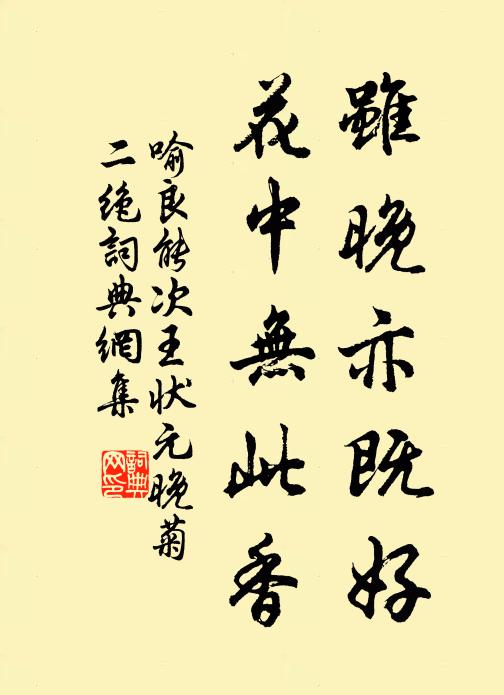 雖晚亦既好
花中無此香
喻良能次王狀元晚菊
二絶詞典網集
詞典
网印